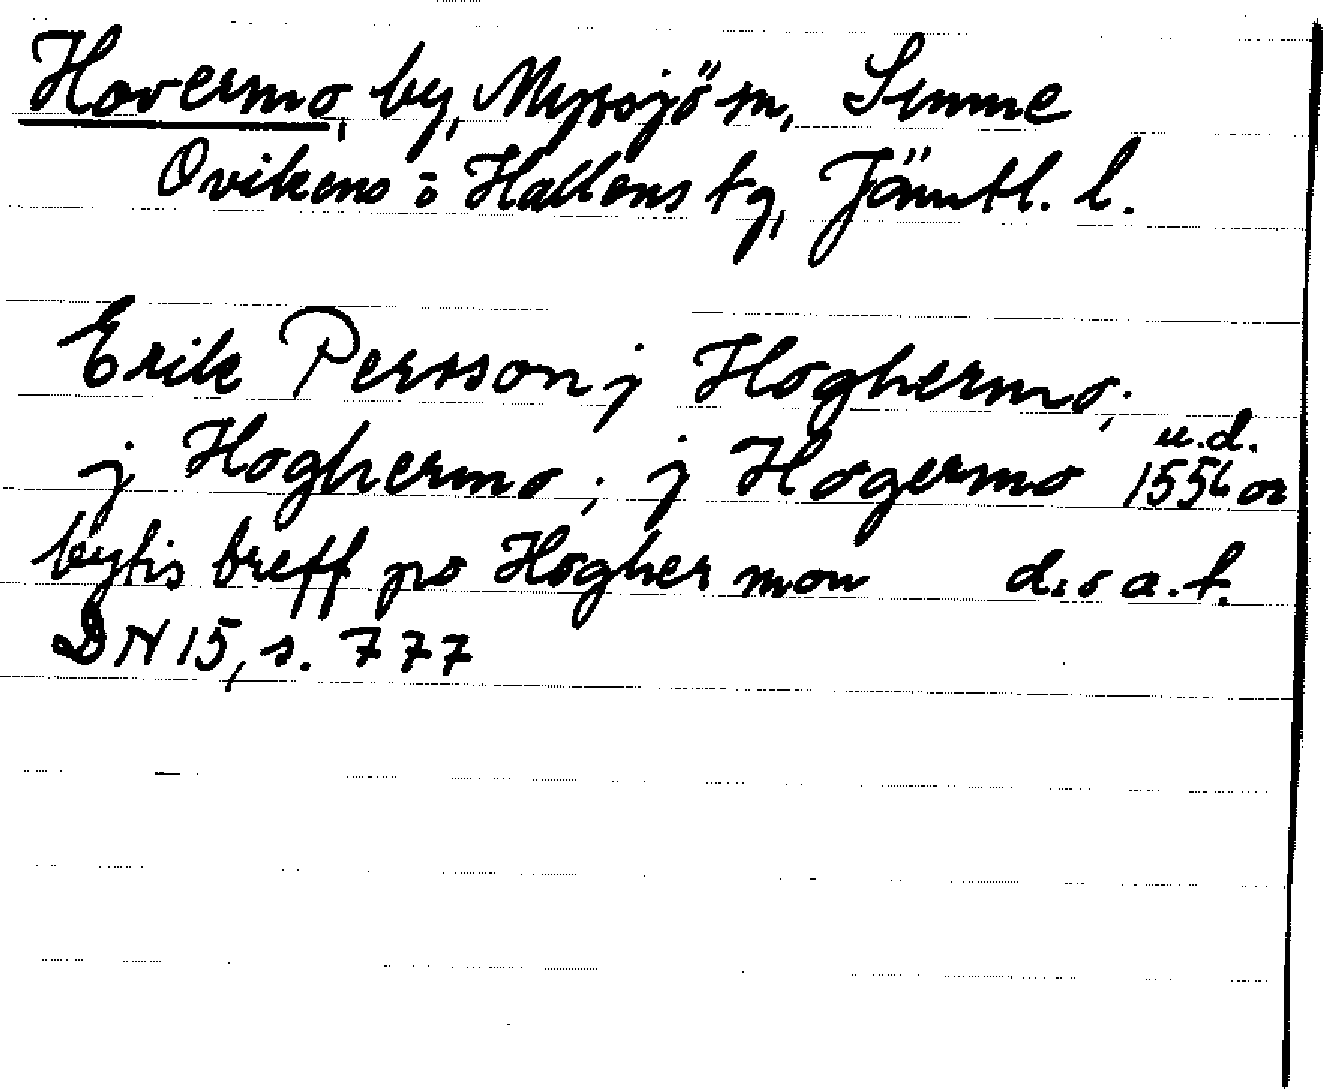 Hovermo, by, Myssjö sn, Sunne
Ovikens o Hallens tg, Jämtl. l.
Erik Persson j Hoghermo;
j Hoghermo; j Hogermo u.d. 1556 or
bytis breff po Hogher mon d.o a.t.
DN 15, s. 777